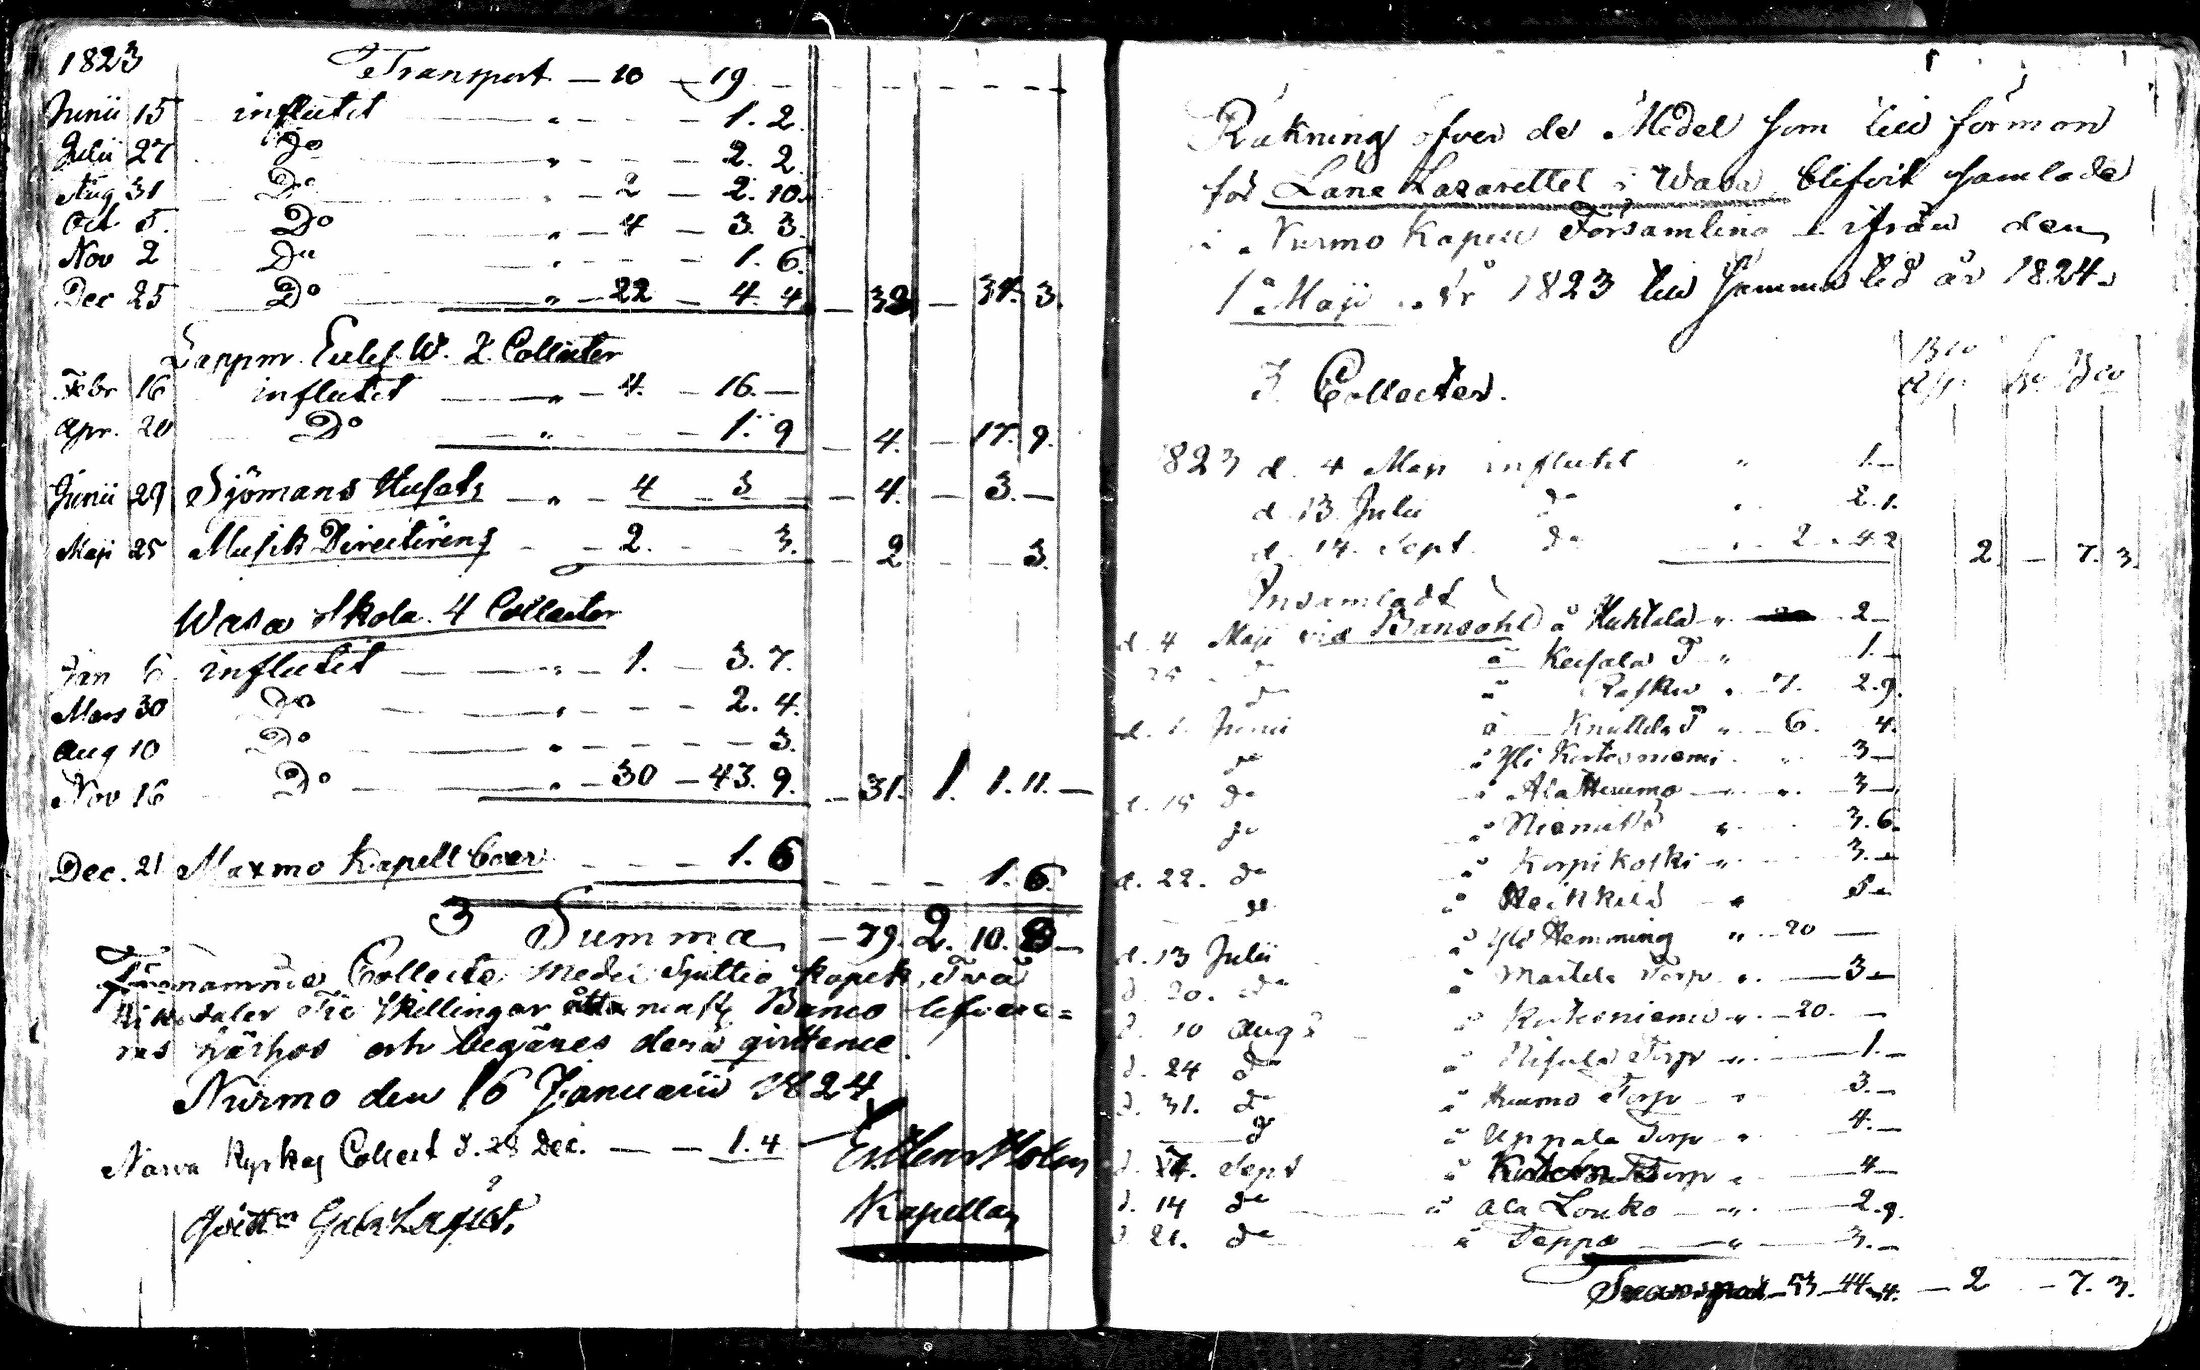 1823 Transport — 10 — 19
Junii 15 influtit " — — 1. 2.
Julii 27 Do " — — 2. 2
Aug 31 Do " — 2 — 2. 10.
Oct 5. Do " — 4 — 3. 3.
Nov 2 Do " — — 1. 6.
Dec 25 Do " — 22 — 4. 4. — 39 — 34. 3.
Lappm. Eccles. W. 2 Collecter
Febr 16 influtit " — 4. — 16. —
Apr. 20 Do " — — 1. 9 — 4. — 17. 9.
Junii 29 Sjömans Husets — " — 4 — 3 — 4. — 3. —
Maji 25 Musik Directörens — 2. — 3. 2 — 3.
Wasa Skola 4 Collecter
Jan 6 influtit — " — 1. — 3. 7.
Mars 30 Do " — — 2. 4.
Aug 10 Do " — — 3.
Nov 16 Do " — 30 — 43. 9. — 31. 1. 1. 11. —
Dec. 21 Maxmo Kapell boer — — 1. 6 — — 1. 6.
Summa — 79. 2. 10. 8 —
Förenämnde Collecte Medel Sjuttio kopek, Två
Riksdaler Tio Skillingar åtta Banco lefvere=
ras härhos och begäres derå qvittence.
Nurmo den 16 Januarii 1824
Narva Kyrkas Collect d. 28 Dec. — — 1. 4
Kapellan
Räkning öfver de Medel som till förmon
för Läne Lazarettet i Wasa blifvit samlade
i Nurmo Kapell Församling ifrån den
1 Maji år 1823 till samma tid år 1824.
3. Collecter. Bco
1823 d. 4 Maji influtit " 1. —
d. 13 Julii do " 2. 1.
d. 14. Sept. do " 2 — 4. 2 2. — 7. 3.
Insamladt
d. 4 Maji vid Barnsöhl å Huhtala " 2 —
25 do å Keisala T " 1. —
do å Rasku " 7. 2. 9.
d. 1. Junii å Knuttila T " 6. 4.
do å Yli Kertesniemi " 3 —
d. 15 do å Ala HeRumo " 3 —
do å Niemistö " 3. 6.
d. 22. do å Korpikoski " 3. —
do å Heikkilä " 5 —
d. 13 Julii å Yli Hemming " — 20 —
d. 20. do å Martela Torp " — 3 —
d. 10 Aug å Kertesniemi " — 20. —
d. 24 do å Nisula Torp " — 1. —
d. 31. do å Ruumo Torp " 3. —
do å Uppala Torp " 4. —
d. 7. Sept å Torp " 4 —
d. 14 do å Ala Louko — " — 2. 9.
d. 21. do å Teppo — " — 3. —
Transport — 53 — 44. 4. — 2 — 7. 3.